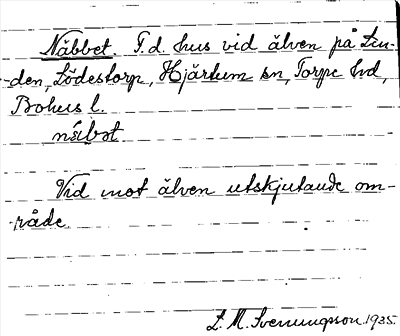 Näbbet. F.d. hus vid älven på Lin-
den, Lödestorp, Hjärtum sn, Torpe hd,
Bohus l.
näbɔt
Vid mot älven utskjutande om-
råde.
L. M. Svenungsson 1935.